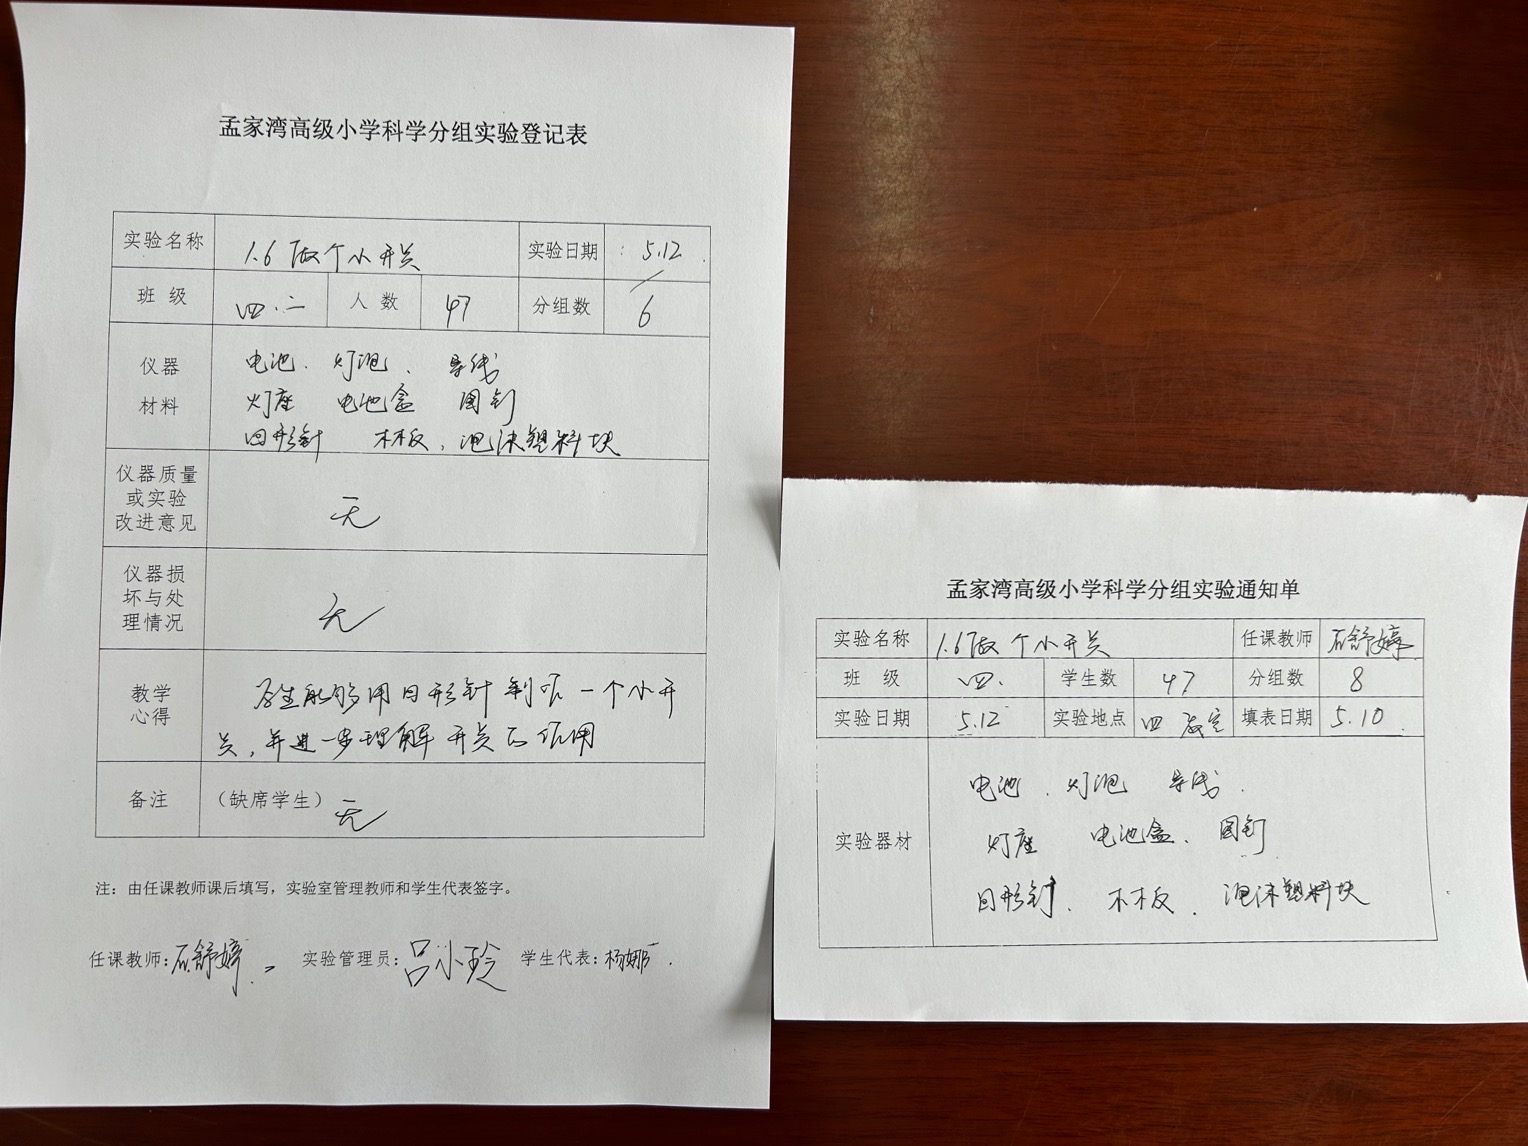 孟家湾高级小学科学分组实验登记表
实验名称 1.6做个小开关 实验日期 5.12
班级 四.二 人数 47 分组数 6
仪器材料
电池、灯泡、导线
灯座 电池盒 图钉
回形针 木板、泡沫塑料块
仪器质量或实验改进意见 无
仪器损坏与处理情况 无
教学心得
学生能够用回形针制作一个小开
关,并进一步理解开关的作用
备注 (缺席学生) 无
注:由任课教师课后填写,实验室管理教师和学生代表签字。
任课教师:石舒婷 实验管理员:吕小玲 学生代表:杨娜
孟家湾高级小学科学分组实验通知单
实验名称 1.6做个小开关 任课教师 石舒婷
班级 四. 学生数 47 分组数 8
实验日期 5.12 实验地点 四教室 填表日期 5.10.
实验器材
电池、灯泡 导线.
灯座 电池盒、图钉
回形针、木板、泡沫塑料块